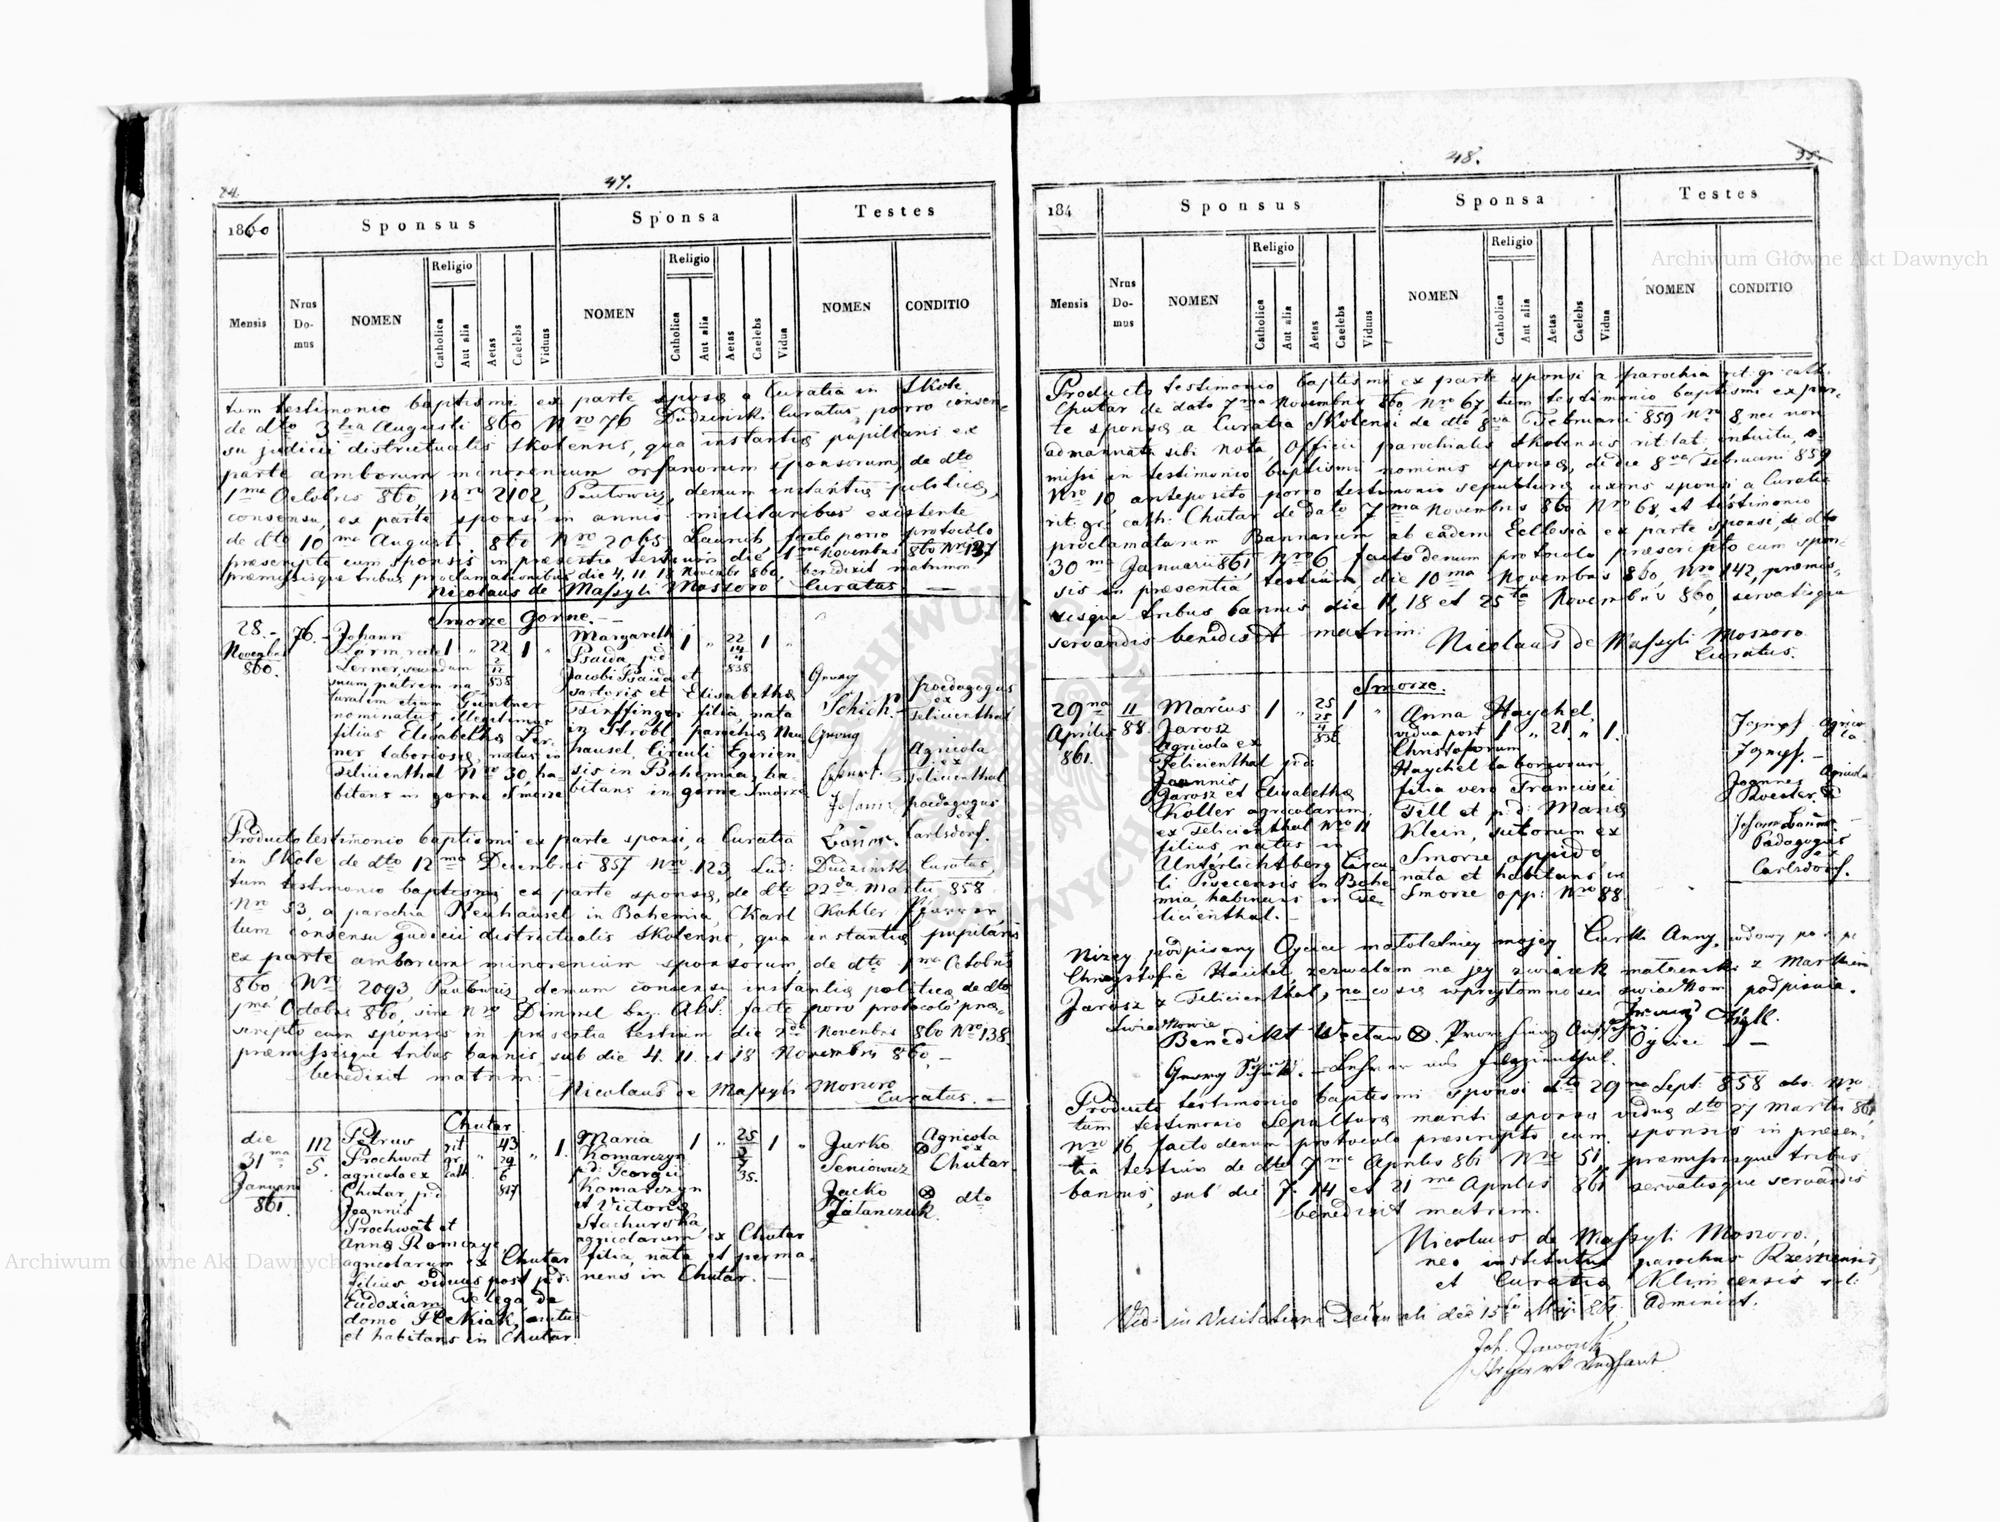 74.
47.
1860
Sponsus
Sponsa
Testes
Mensis
Nrus Domus
NOMEN
Religio
Catholica
Aut alia
Aetas
Caelebs
Viduus
NOMEN
Religio
Catholica
Aut alia
Aetas
Caelebs
Vidua
NOMEN
CONDITIO
tum testimonio baptismi ex parte sponsæ a Curatia in Skole
de dto 3tia Augusti 860 Nro 76 Dudzinski Curatus porro consen-
su judicii districtualis Skolensis, qua instantiæ pupillaris ex
parte amborum minorennium orfanorum sponsorum, de dto
1ma Octobris 860, Nro 2102, Pautowicz, demum instantiæ politicæ,
consensu, ex parte sponsi in annis militaribus existente
de dto 10ma Augusti 860 Nro 2065 facto porro protocolo
præscripto cum sponsis in præsentia testium die 1ma Novembris 860 Nro 137
præmissisque tribus proclamationibus die 4, 11, 18 Novembr 860, benedixit matrimon
Nicolaus de Massyli Moszoro Curatus
Smorze Gorne.
28.
Novembris
860.
76.
Johann
Lerner, secundum
suum patrem na-
turalem etiam Güntner
nominatus, illegitimus
filius Elisabethæ Ler-
ner laboriosæ, natus in
Felicienthal Nro 30, ha-
bitans in gorne Smorze
1 " 22 1 "
838
Margareth
Psaida, p:d:
Jacobi Psaida et
sartoris et Elisabethæ
filia, nata
in Ströbl parochiæ Neu
hausel, Circuli Egerien
sis in Bohemia, ha-
bitans in gorne Smorze
1 " 22 1 "
838.
Georg
Schich.
Georg
Johann
Bauer.
poedagogus
ex
Felicienthal
Agricola
ex
Felicienthal
poedagogus
ex
Carlsdorf.
Producto testimonio baptismi ex parte sponsi, a Curatia
in Skole de dto 12ma Decembris 857 Nro 123, Lud: Dudzinski Curatus,
tum testimonio baptismi ex parte sponsæ, de dto 22da Martii 858
Nro 53, a parochia Neuhäusel in Bohemia, Karl Kohler Pfarrer,
tum consensu judicii districtualis Skolensis, qua instantiæ pupilaris
ex parte amborum minorennium sponsorum, de dto 1ma Octobris
860 Nro 2093, Pautowicz demum consensu instantiæ politicæ de dto
1ma Octobris 860, sine Nro Dimmel facto poro protocolo præ-
scripto cum sponsis in præsentia testium die 2da Novembris 860 Nro 138,
præmissisque tribus bannis, sub die 4. 11. et 18 Novembris 860,
benedixit matrim:
Nicolaus de Massyli Moszoro
Curatus.
Chutar
die
31ma
Januarii
861.
112
5.
Petrus
Prochwat
agricola ex
Chutar, p:d:
Joannis
Prochwat et
Annæ Romczyc
agricolarum ex Chutar
filius viduus post p:d:
Eudoxiam Telega, de
domo Ilekiak, natus
et habitans in Chutar
rit.
gr.
cath.
43
29
6
817.
1.
Maria
Komarczyn
p:d: Georgii
Komarczyn
et Victoriæ
Stachurska,
agricolarum ex Chutar
filia, nata et perma-
nens in Chutar.
1 " 25 1 "
35.
Jurko
Seniowicz
Jacko
Agricola
ex
Chutar
dto
48.
35.
184
Sponsus
Sponsa
Testes
Mensis
Nrus Domus
NOMEN
Religio
Catholica
Aut alia
Aetas
Caelebs
Viduus
NOMEN
Religio
Catholica
Aut alia
Aetas
Caelebs
Vidua
NOMEN
CONDITIO
Producto testimonio baptismi ex parte sponsi a parochia rit. gr. cath.
Chutar de dato 7ma Novembris 860 Nro 67 tum testimonio baptismi ex par-
te sponsæ a Curatia Skolensi de dto 8va Februarii 859 Nro 8, nec non
adnotata sibi nota, Officii parochialis Skolensis rit. lat. intuitu,
missi in testimonio baptismi nominis sponsæ, de die 8va Februarii 859
Nro 10, anteposito porro testimonio sepulturæ uxoris sponsi a Curatia
rit. gr. cath. Chutar de dato 7ma Novembris 860 Nro 68, et testimonio
proclamatarum Bannarum ab eadem Ecclesia ex parte sponsi, de dto
30ma Januarii 861, Nro 6, facto demum protocolo præscripto cum spon-
sis in præsentia testium die 10ma Novembris 860, Nro 142, præmis-
sisque tribus bannis die 11, 18 et 25ta Novembris 860, servatisque
servandis benedixit matrim:
Nicolaus de Massyli Moszoro
Curatus.
Smorze.
29na
Aprilis
861.
11
88.
Marcus
Jarosz
agricola ex
Felicienthal p:d:
Joannis
Jarosz et Elisabethæ
Koller agricolarum
ex Felicienthal Nro 11
filius, natus in
Unterlichtberg Circu-
li Pisecensis in Bohe-
mia, habitans in Fe-
licienthal.
1 " 25 1 "
836
Anna Haychel,
vidua post
Christoforum
Haychel laboriosum,
filia vero Francisci
Till et p:d: Mariæ
Klein, sutorum ex
Smorze oppido,
nata et habitans in
Smorze opp: Nro 88.
1 " 21 " 1.
Joannes
Johann Bauer
Agricola
Agricola
Pædagogus
ex
Carlsdorf.
Niżey podpisany Oyciec małoletniey mojey Curki Anny, wdowy po
Chrzystofie Haichel zezwalam na jey związek małżenski z Markiem
Jarosz z Felicienthal, na co się w przytomnosci swiadkom podpisuie.
Swiadkowie
Benedikt Wectaw
Oyciec
Georg Schich. - Lehrer aus Felizienthal.
Producto testimonio baptismi sponsi dto 29na Sept: 858 abs. Nro
tum testimonio Sepulturæ mariti sponsæ viduæ dto 27 Martii 861
Nro 16 facto demum protocolo præscripto cum sponsis in præsen-
tia testium de dto 7ma Aprilis 861 Nro 51, præmissisque tribus
bannis, sub die 7. 14 et 21ma Aprilis 861 servatisque servandis
benedixit matrim.
Nicolaus de Massyli Moszoro,
neo institutus parochus
et Curatiæ Klimcensis
Administ.
Vid: in Visitatione Decanali die 15ta Maji 861.
Archiwum Główne Akt Dawnych
Archiwum Główne Akt Dawnych